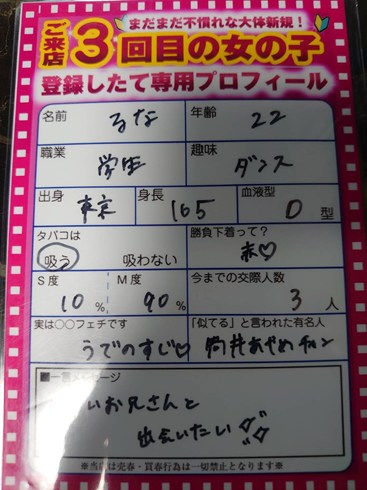 まだまだ不慣れな大体新規！
ご来店3回目の女の子
登録したて専用プロフィール
名前 るな 年齢 22
職業 学生 趣味 ダンス
出身 東京 身長 165 血液型 O 型
タバコは 勝負下着って？
吸う 吸わない 赤♡
S度 M度 今までの交際人数
10% 90% 3人
実は○○フェチです 「似てる」と言われた有名人
うでのすじ♡ 筒井あやめチャン
■一言メッセージ
いお兄さんと
出会いたい
※当店は売春・買春行為は一切禁止となります※